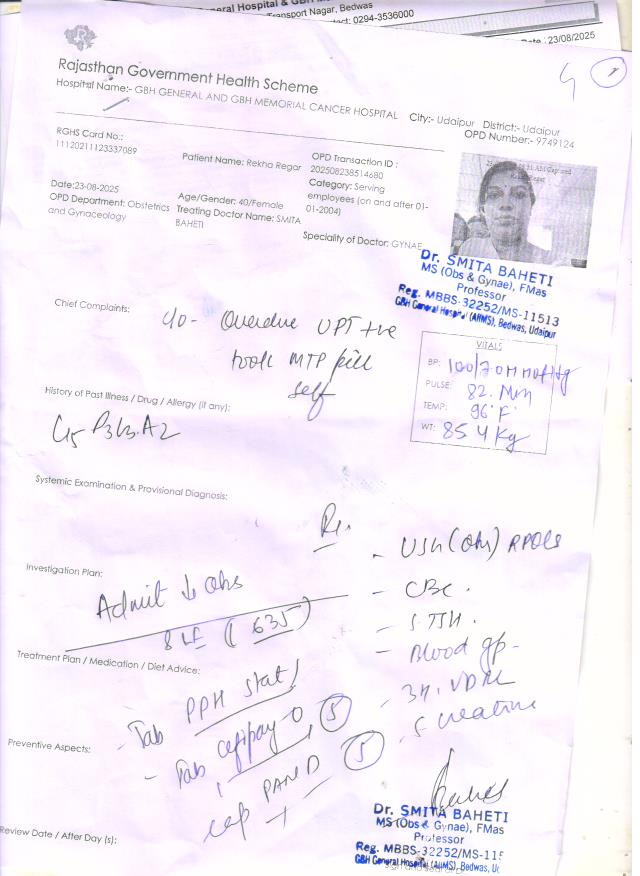 eral Hospital & GBH M
ansport Nagar, Bedwas
tact: 0294-3536000
Date : 23/08/2025
Rajasthan Government Health Scheme
Hospital Name:- GBH GENERAL AND GBH MEMORIAL CANCER HOSPITAL City:- Udaipur District:- Udaipur
OPD Number:- 9749124
RGHS Card No.:
11120211123337089
Patient Name: Rekha Regar
OPD Transaction ID :
202508238514680
Category: Serving
employees (on and after 01-
01-2004)
Date:23-08-2025
OPD Department: Obstetrics
and Gynaceology
Age/Gender: 40/Female
Treating Doctor Name: SMITA
BAHETI
Speciality of Doctor: GYNAE
Dr. SMITA BAHETI
MS (Obs & Gynae), FMas
Professor
Reg. MBBS-32252/MS-11513
GBH General Hospital (AIIMS), Bedwas, Udaipur
Chief Complaints:
c/o- Overdue UPT +ve
took MTP pill
self
VITALS
BP: 100/70 mmHg
PULSE: 82. Min
TEMP: 96°F
WT: 85.4 Kg
History of Past Illness / Drug / Allergy (if any):
G5 P3L3 A2
Systemic Examination & Provisional Diagnosis:
Rx.
- USG (Obs) RPOCs
Investigation Plan:
Admit ↓ obs
- CBC.
(635)
- S. TSH.
- Blood gp-
Treatment Plan / Medication / Diet Advice:
- Tab PPH stat
- 3H, VDRL
- S. creatine
Preventive Aspects:
- Tab O (5)
cap PAN D (5)
Dr. SMITA BAHETI
MS (Obs & Gynae), FMas
Professor
Reg. MBBS-32252/MS-115
GBH General Hospital (AIIMS), Bedwas, Ud
Review Date / After Day (s):